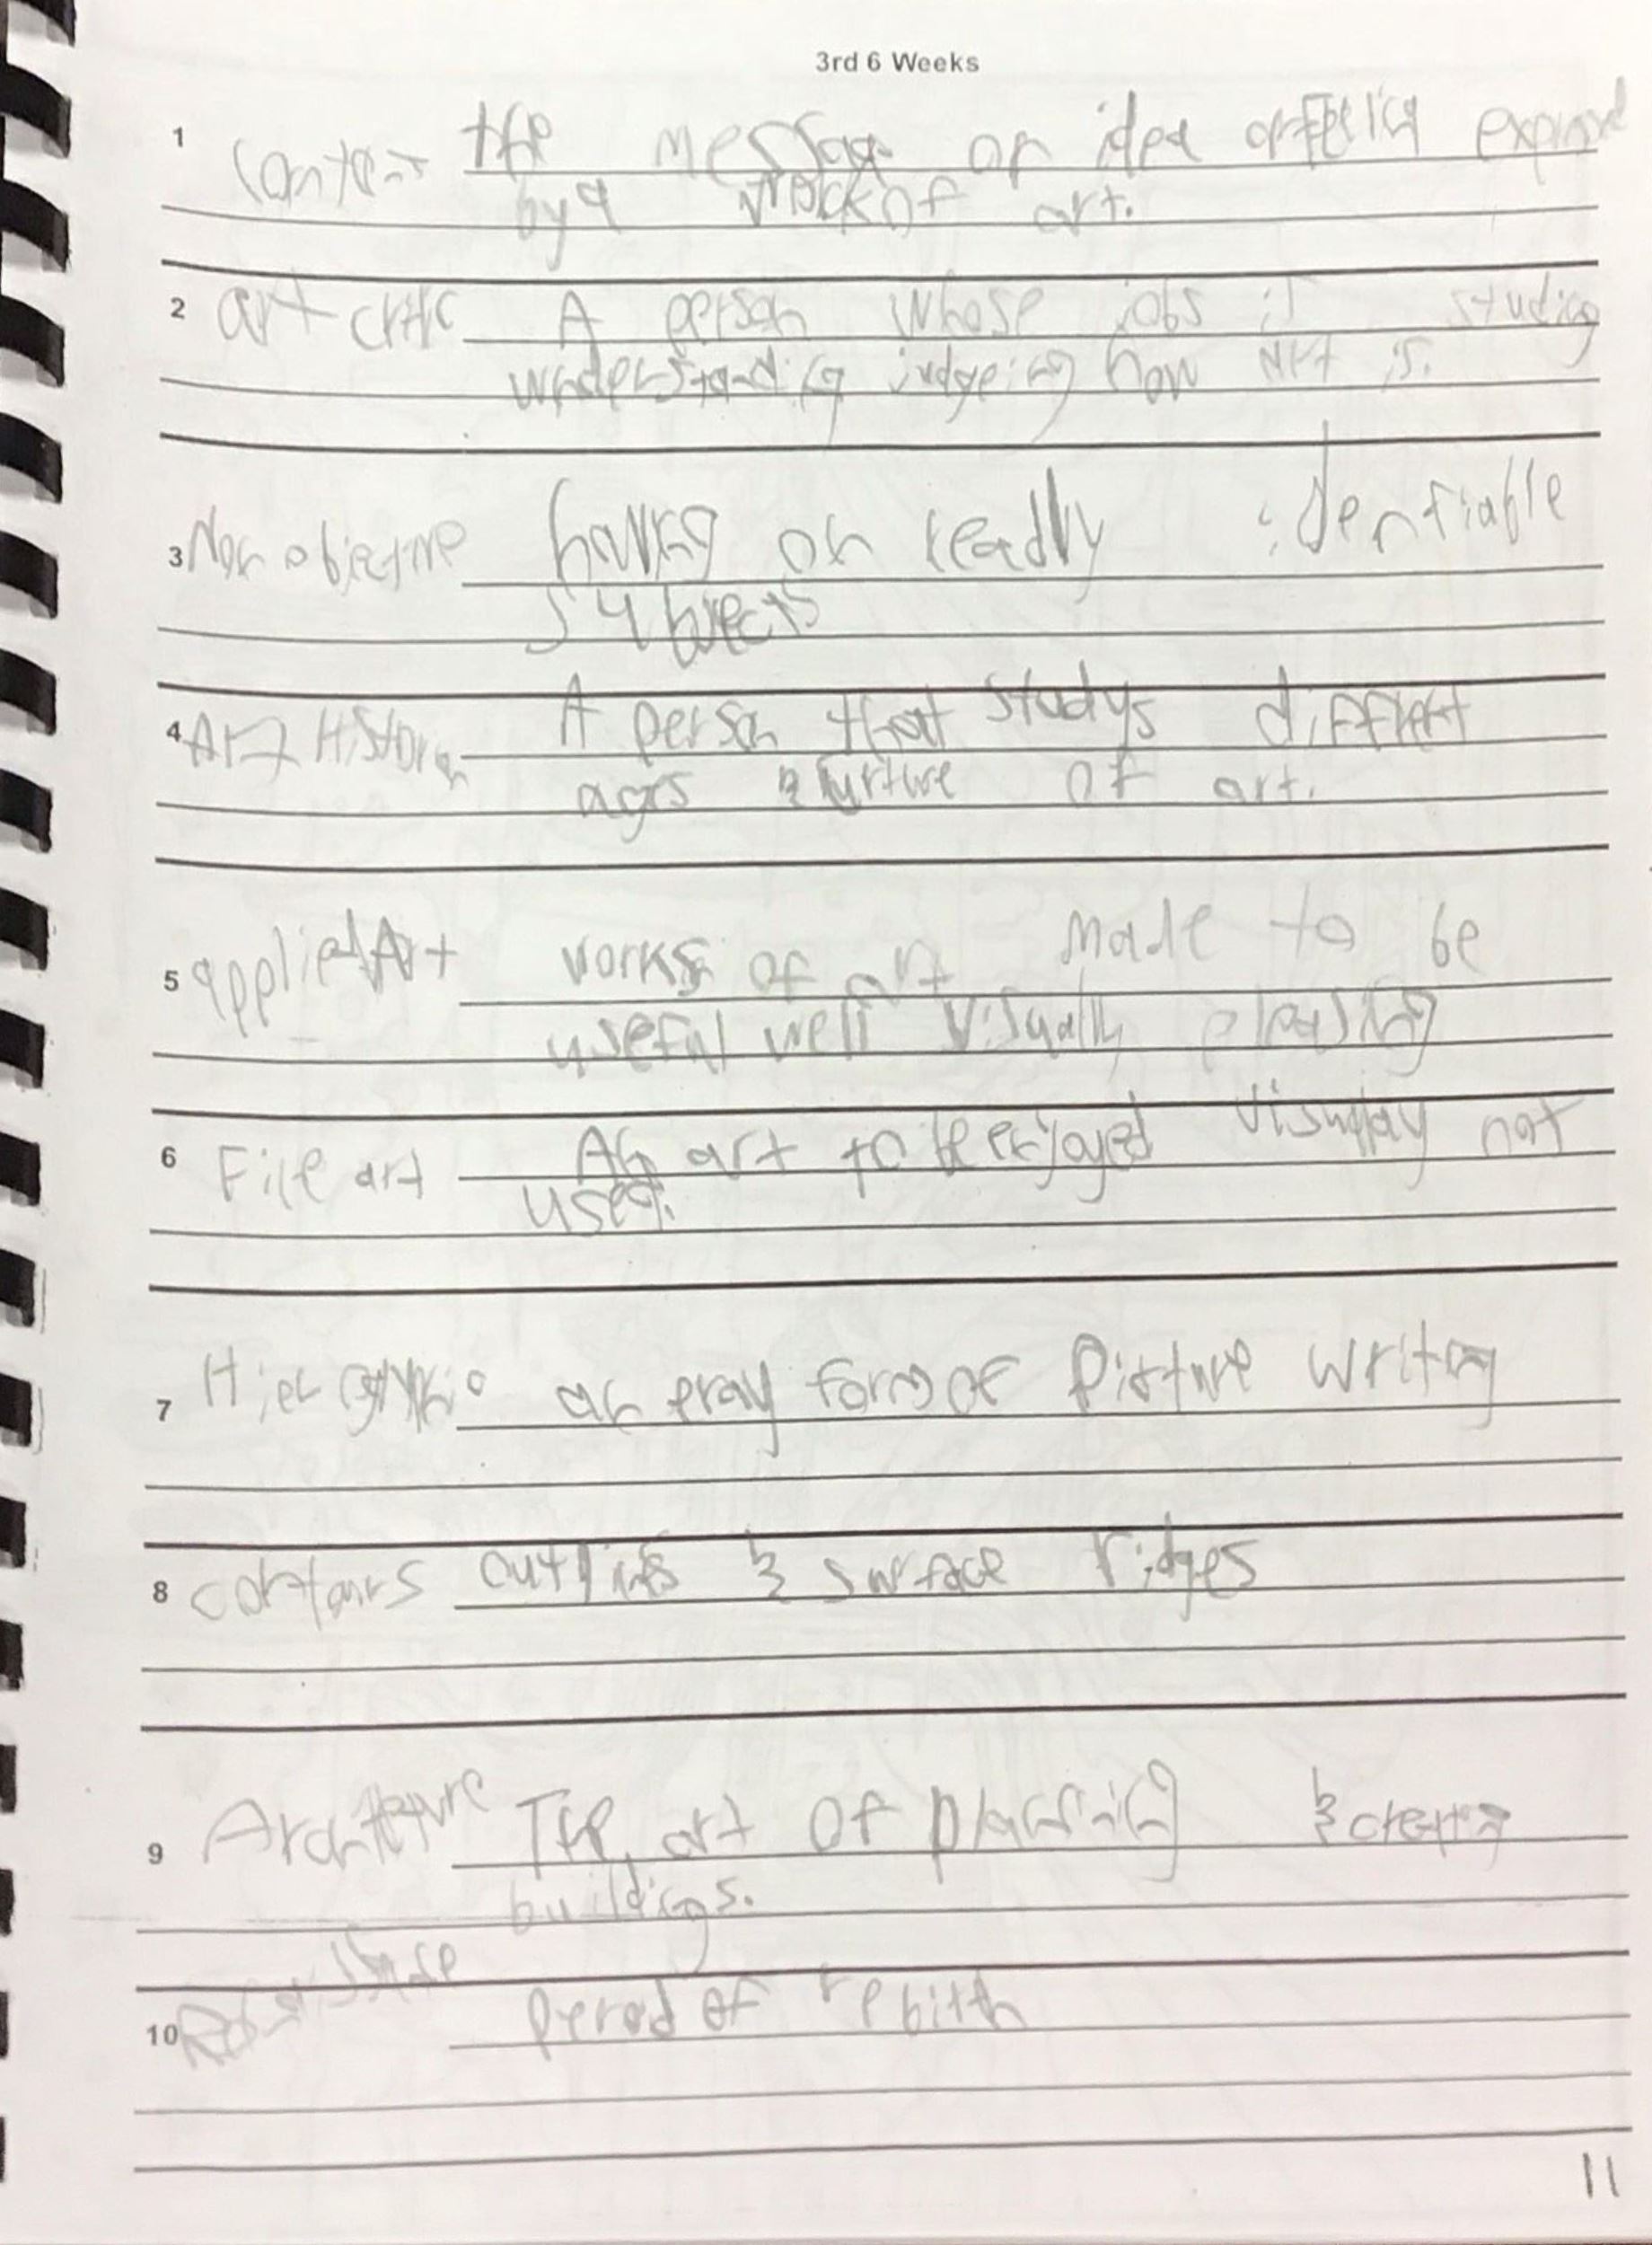 3rd 6 Weeks
1 content the message or idea or feelicg expressed
by a work of art.
2 art critic A person whose jobs is studing
understanding judgeing how Art is.
3 Non objective having on readly identifiable
subjects
4 Art Historian A person that studys diffrent
ages & of art.
5 applied Art works of art made to be
useful well visually pleasing
6 Fine art art to be enjoyed visually not
used.
7 an form of Picture writing
8 contours outlines & surface ridges
9 Architeture The art of planning & creating
buildings.
10 Period of rebirth
11